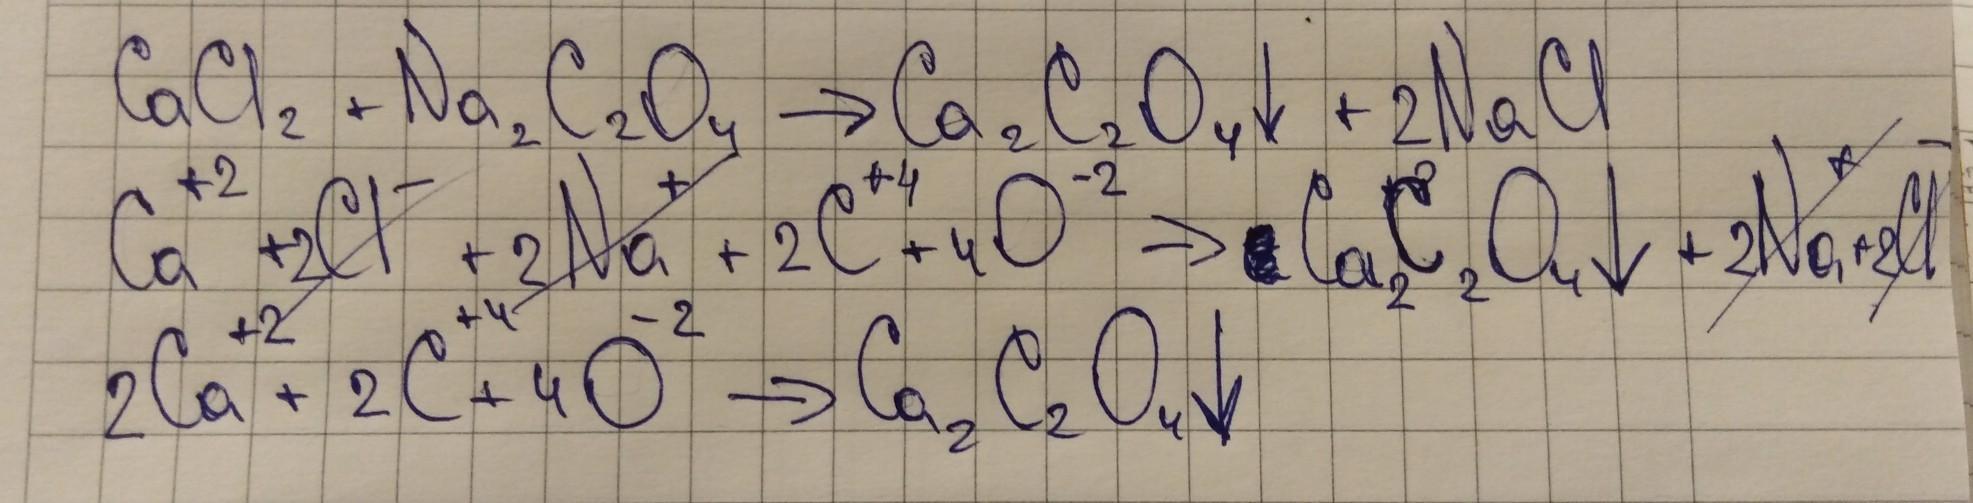 CaCl₂ + Na₂C₂O₄ → Ca₂C₂O₄↓ + 2NaCl
Ca⁺² + 2Cl⁻ + 2Na⁺ + 2C⁺⁴ + 4O⁻² → Ca₂C₂O₄↓ + 2Na⁺ + 2Cl⁻
2Ca⁺² + 2C⁺⁴ + 4O⁻² → Ca₂C₂O₄↓